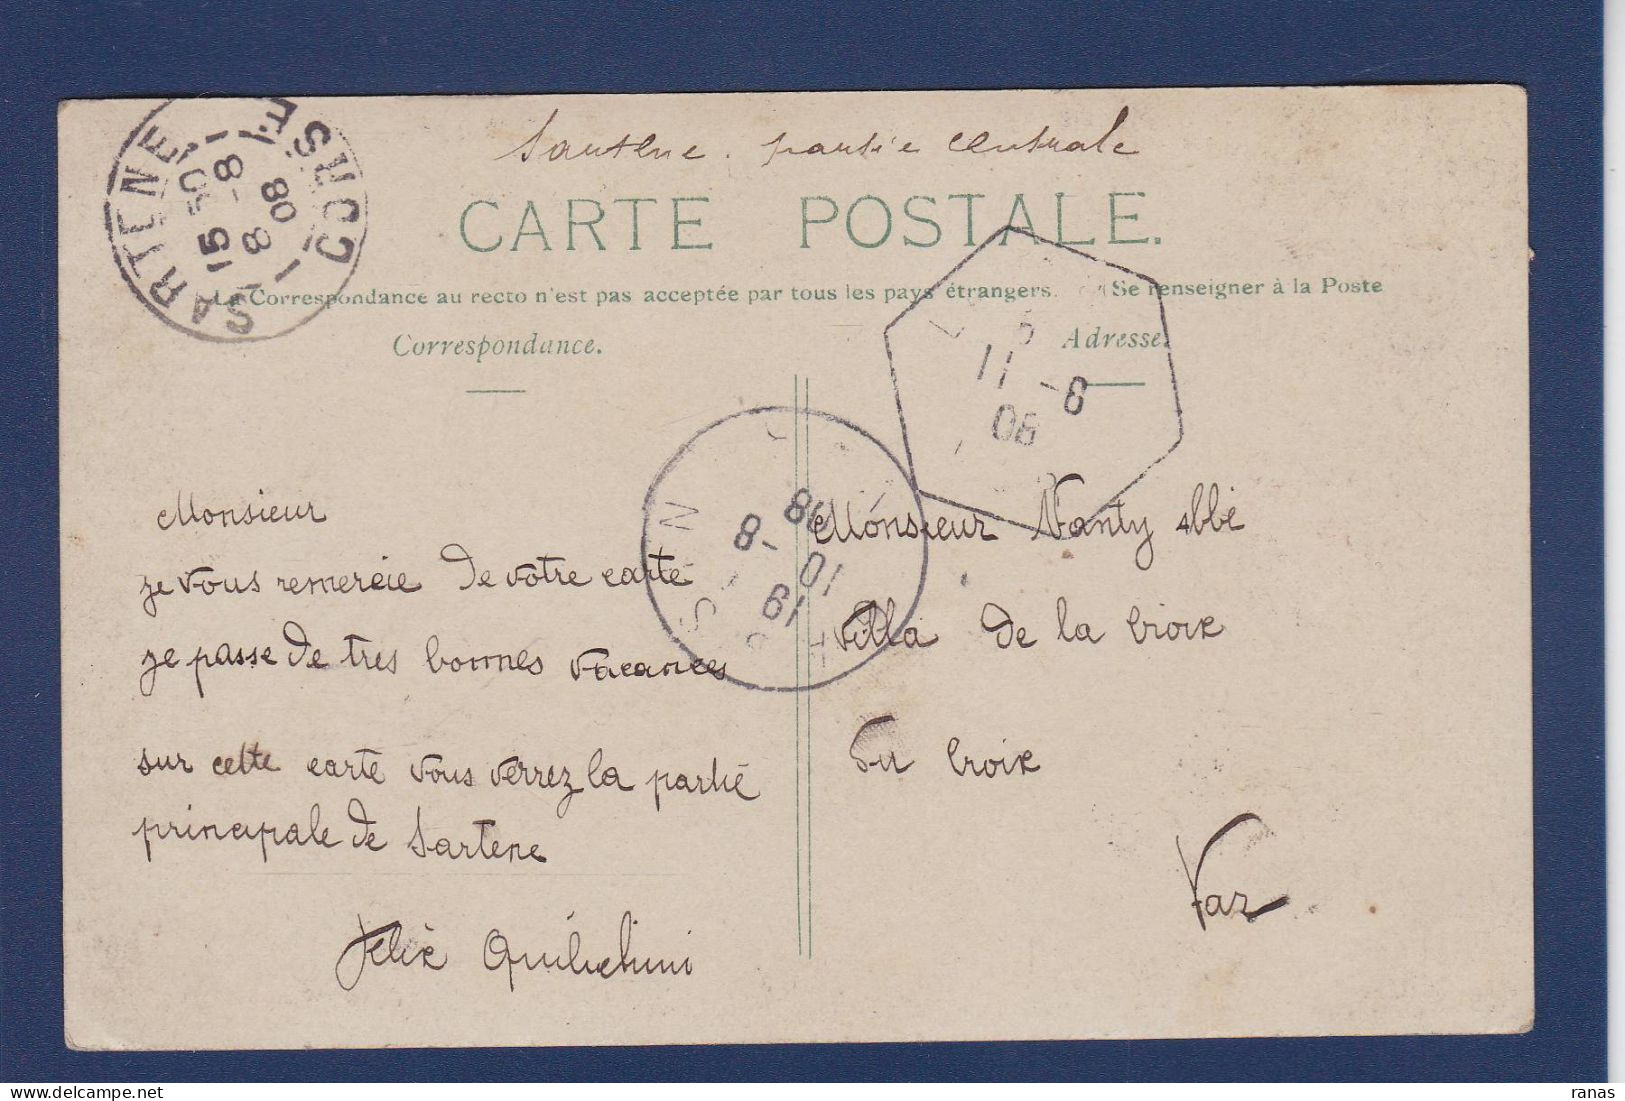 Sartene. partie centrale
CARTE POSTALE.
La Correspondance au recto n'est pas acceptée par tous les pays étrangers. (Se renseigner à la Poste
Correspondance.
Adresse.
SARTENE
CORSE
8 -8 08
11 -8
08
8 -8
10
19
Monsieur
je vous remercie de votre carte
je passe de tres bonnes vacances
sur cette carte vous verrez la partie
principale de Sartene
Felix Quilichini
Monsieur Nanty abbé
villa de la Croix
La Croix
Var
ranas